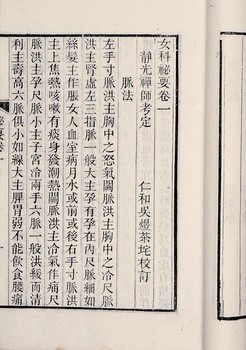 女科秘要卷一
靜光禪師考定
仁和吳煜茶垞校訂
脈法
左手寸脈洪主胸中之怒氣關脈洪主胸中之冷尺脈
洪主腎虛左三指脈一般大主孕有孕在內尺脈細如
絲髮主作脹女人血室病月水或前或後右手寸脈洪
主上焦熱咳嗽有痰身發潮熱關脈洪主冷氣作痛尺
脈洪主孕尺脈小主子宮冷兩手六脈一般洪緩而清
利主壽高六脈俱小如線大主脾胃弱不能飲食腰痛
秘要卷一
一